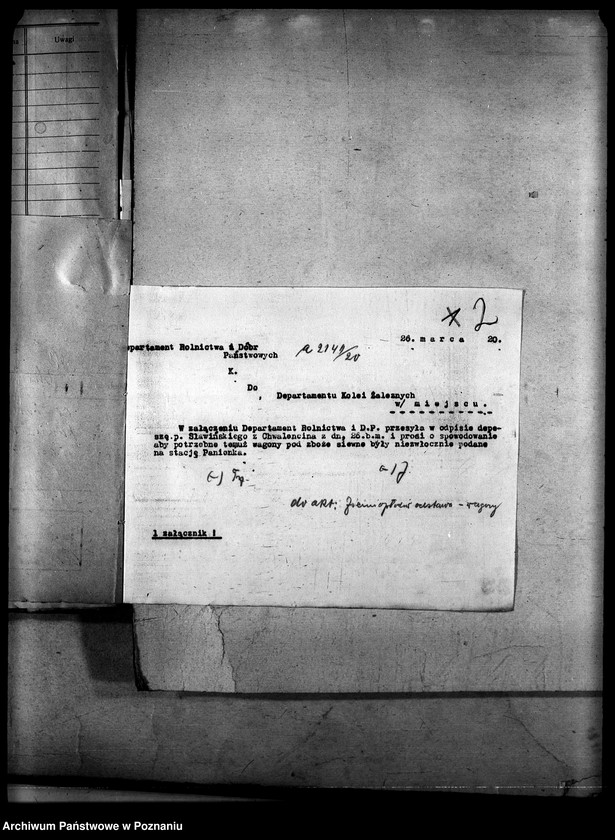 Uwagi
2
26. m a r c a 20.
partament Rolnictwa i Dóbr
Państwowych
a 2149/20
K.
Do
Departamentu Kolei Żelaznych
w/ m i e j s c u.
W załączeniu Departament Rolnictwa i D.P. przesyła w odpisie depe-
szę.p. Sławińskiego z Chwalencina z dn. 26.b.m. i prosi o spowodowanie
aby potrzebne temuż wagony pod zboże siewne były niezwłocznie podane
na stację Panionka.
do akt: - wagony
1 załącznik !
Archiwum Państwowe w Poznaniu